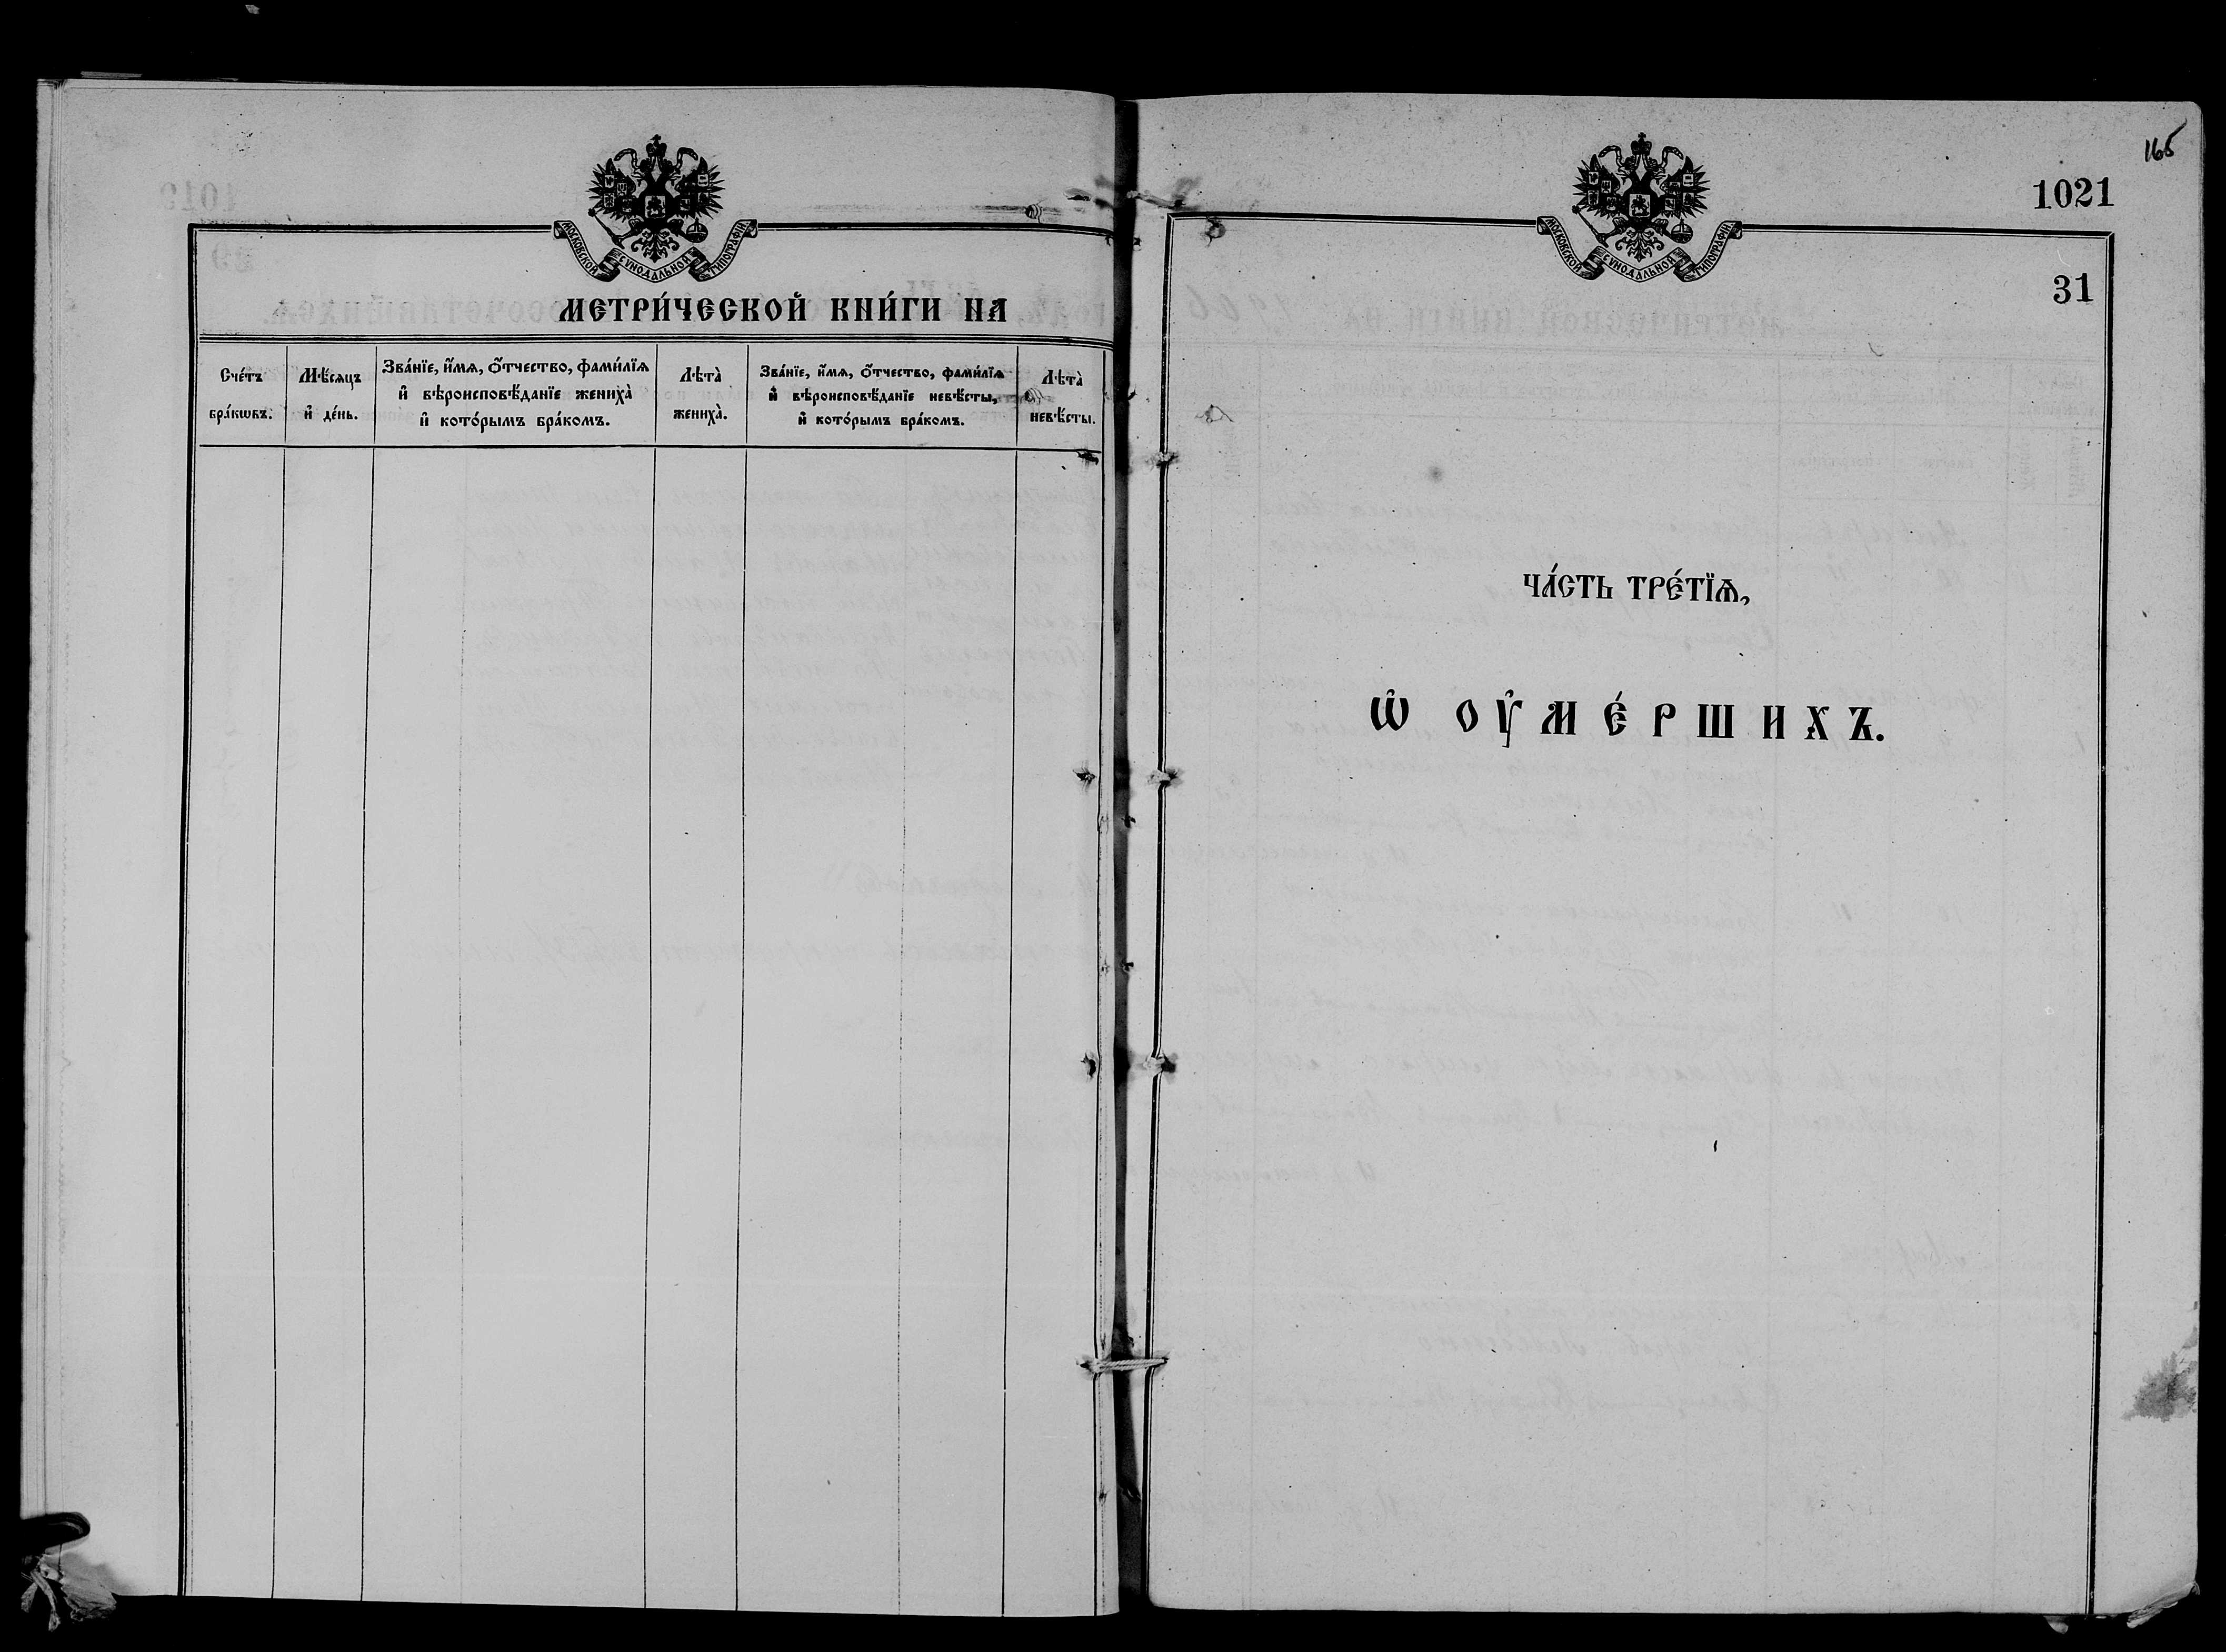 МОСКОВСКОЙ СѴНОДАЛЬНОЙ ТИПОГРАФІИ
МЕТРИ́ЧЕСКОЙ КНИ́ГИ НА
Сче́тъ
бра́кѡвъ.
Мѣ́сяцъ
и҆ де́нь.
Зва́нїе, и҆́мѧ, ѻ҆́тчество, фами́лїѧ
и҆ вѣроисповѣ́данїе жениха̀
и҆ кото́рымъ бра́комъ.
Лѣта̀
жениха̀.
Зва́нїе, и҆́мѧ, ѻ҆́тчество, фами́лїѧ
и҆ вѣроисповѣ́данїе невѣ́сты,
и҆ кото́рымъ бра́комъ.
Лѣта̀
невѣ́сты.
165
1021
МОСКОВСКОЙ СѴНОДАЛЬНОЙ ТИПОГРАФІИ
31
ЧА́СТЬ ТРЕ́ТЇѦ,
Ѡ҆ ОУ҆МЕ́РШИХЪ.